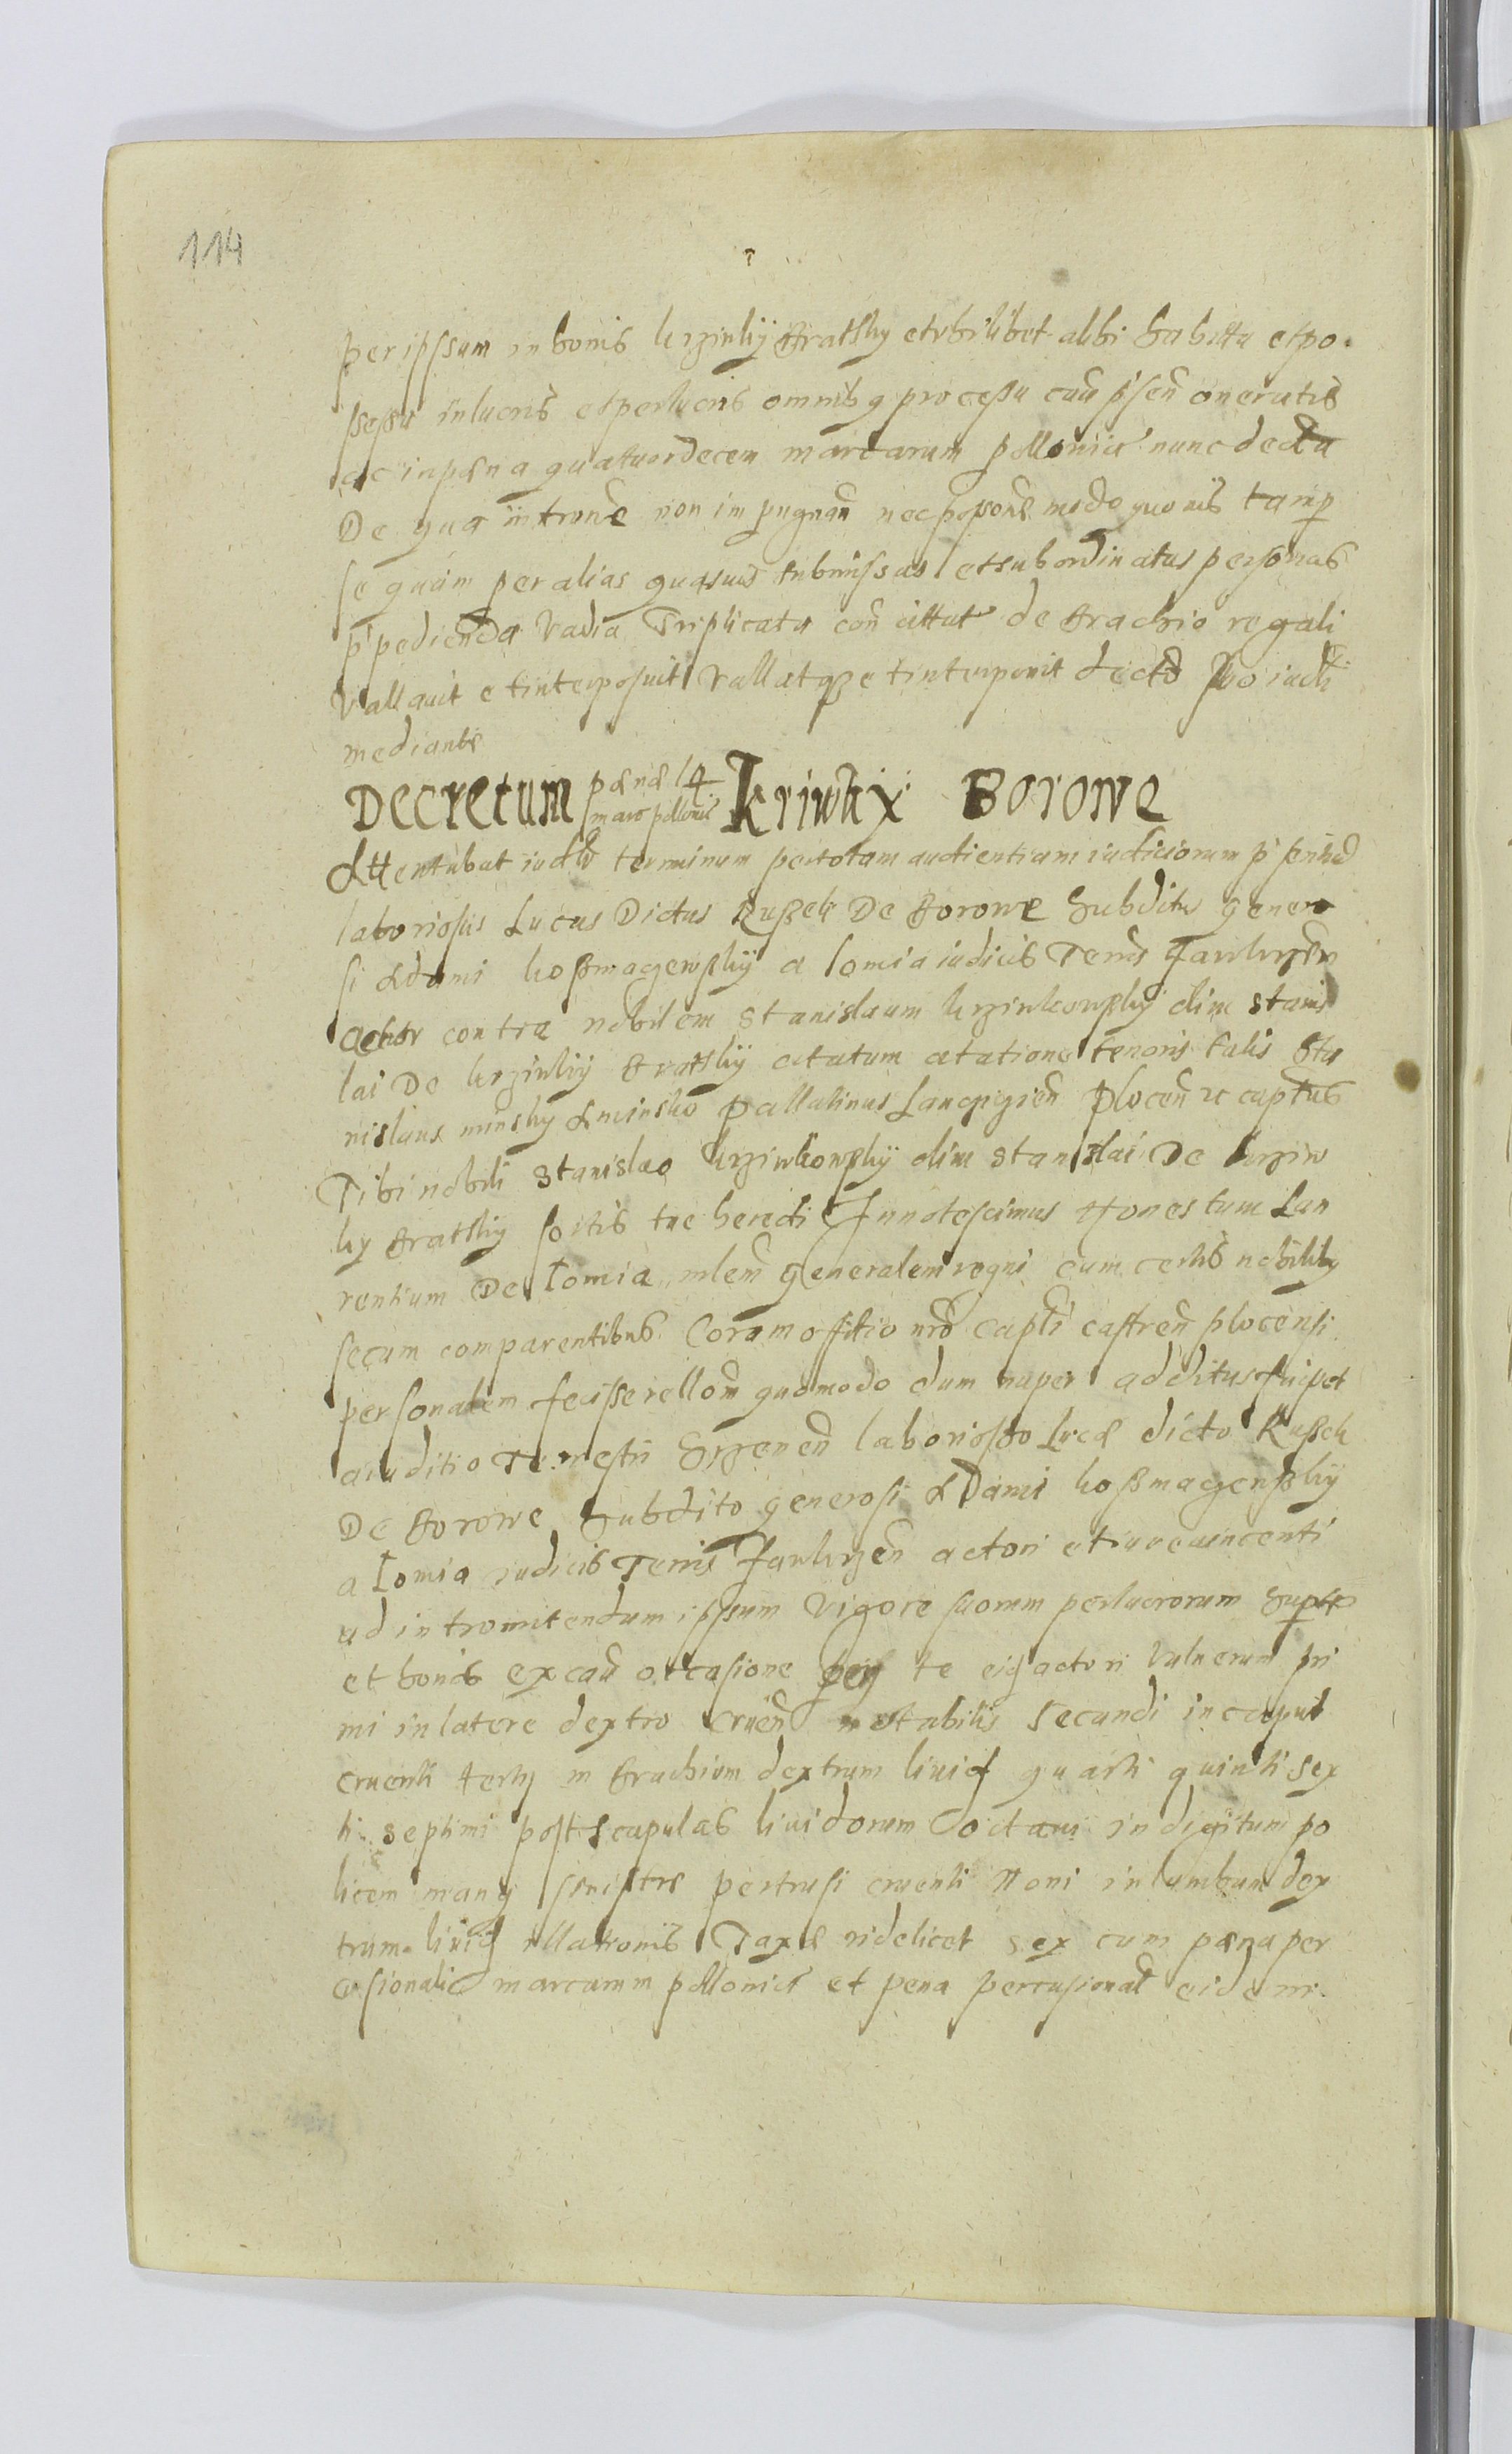 114
per ipssum in bonis krziwkÿ Bratskÿ et vbilibet alibi habitu et po.
ssessu in lucris et perlucris omnibꝗ processu causꝫ pñsen oneratis
ac in pæna quatuordecem marcarum pollonic nunc decta
De qua intrõne non impugnan nec modo quouis tam ꝑ
se quàm per alias quasuis submissas et subordinatas personas
Vadia Triplicata con cittat de Brachio regali
Vallauit et interposuit Vallatqꝫ et interponit decto suo iudli
mediante
Decretum pænæ 14 marc pollonic kriwki x Borowe
Attentabat iudlr terminum per totam audientiam iudiciorum
laboriosus Lucas Dictus Russek De Borowe Subditus genero
si Adami kossmaczewskÿ a lomia iudicis Terris Zawkrzen
actor contra nobilem Stanislaum krziwkowskÿ olim Stanis
lai De krziwkÿ Bratskÿ citatum citatione tenoris talis Sta
nislaus minsky A minsko pallatinus Lancziczien Plocen zc captus
Tibi nobili Stanislao krziwkowskÿ olim Stanislai De krziw
ky Bratskÿ sortis tue heredi Innotescimus Honestum Lau
rentium De Lomia mlem generalem regni cum certis nobilibꝫ
secum comparentibus Coram offitio nro capli castren plocensi
personalem fecisse rellom quomodo dum nuper additus fuisset
a iuditio Terrestri Srzenen laboriosso Lucæ dicto Russek
De Borowe Subdito generosi Adami kossmaczenskÿ
a Lomia iudicis Terris Zawkrzen actori et iureuincenti
ad intromitendum ipssum Vigore suorum perlucrorum
et bonis ex cau occasione per te eiꝗ actori Vulnerum pri
mi in latere dextro cruen notabilis secundi in caput
cruenti tertij in Brachium dextrum liuidi quarti quinti sex
ti septimi post scapulas liuidorum octaui in digitum po
licem manꝗ sinistre pertrusi cruenti Noni in lumbum dex
trum liuidi illationis Taxæ videlicet sex cum pæna per
cusionali marcarum pollonic et pena percusional eidem